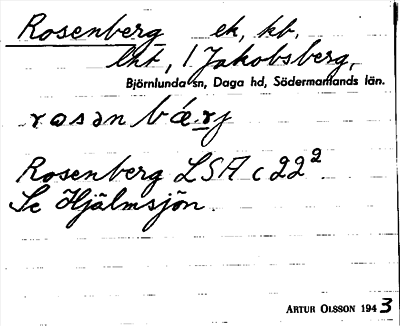 Rosenberg ek, kb,
lht, 1 Jakobsberg,
Björnlunda sn, Daga hd, Södermanlands län.
rosənbǽrj
Rosenberg LSA c 22²
Se Hjälmsjön.
ARTUR OLSSON 1943